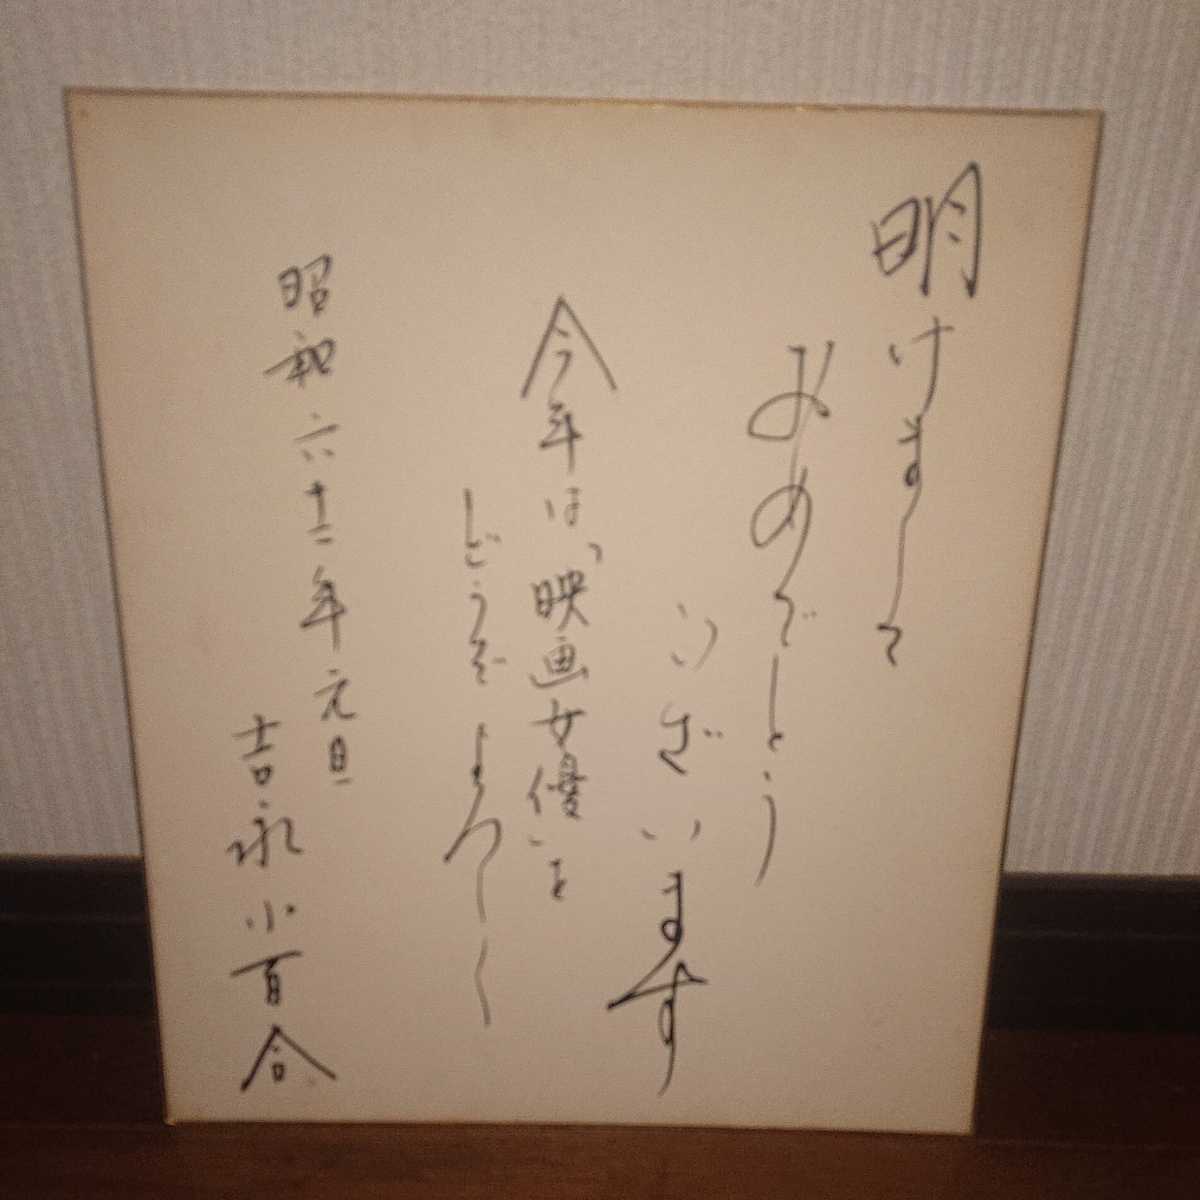 明けまして
おめでとう
ございます
今年は、「映画女優」を
どうぞよろしく
昭和六十二年元旦
吉永小百合